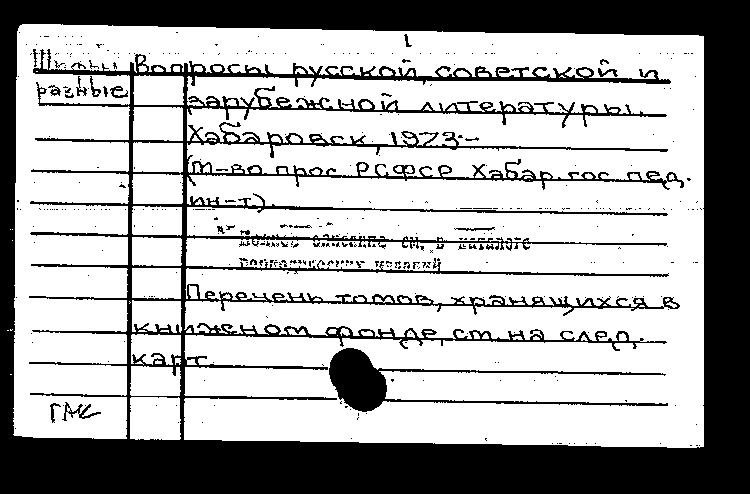 1
Шифры Вопросы русской, советской и
разные зарубежной литературы.
Хабаровск, 1973.-
(М-во прос РСФСР Хабар. гос. пед.
ин-т).
Полное описание см. в каталоге
периодических изданий
Перечень томов, хранящихся в
книжном фонде, см. на след.
карт.
ГАК